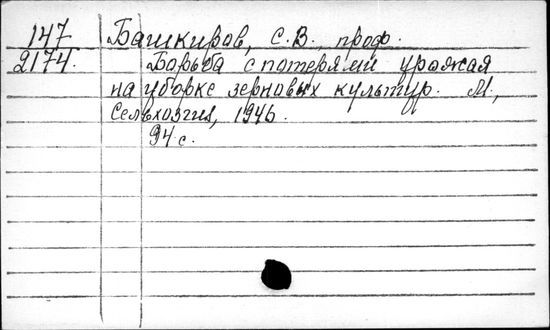 147 Башкиров, С.В., проф.
2174. Борьба с потерями урожая
на уборке зерновых культур. М.,
Сельхозгиз, 1946.
94 с.